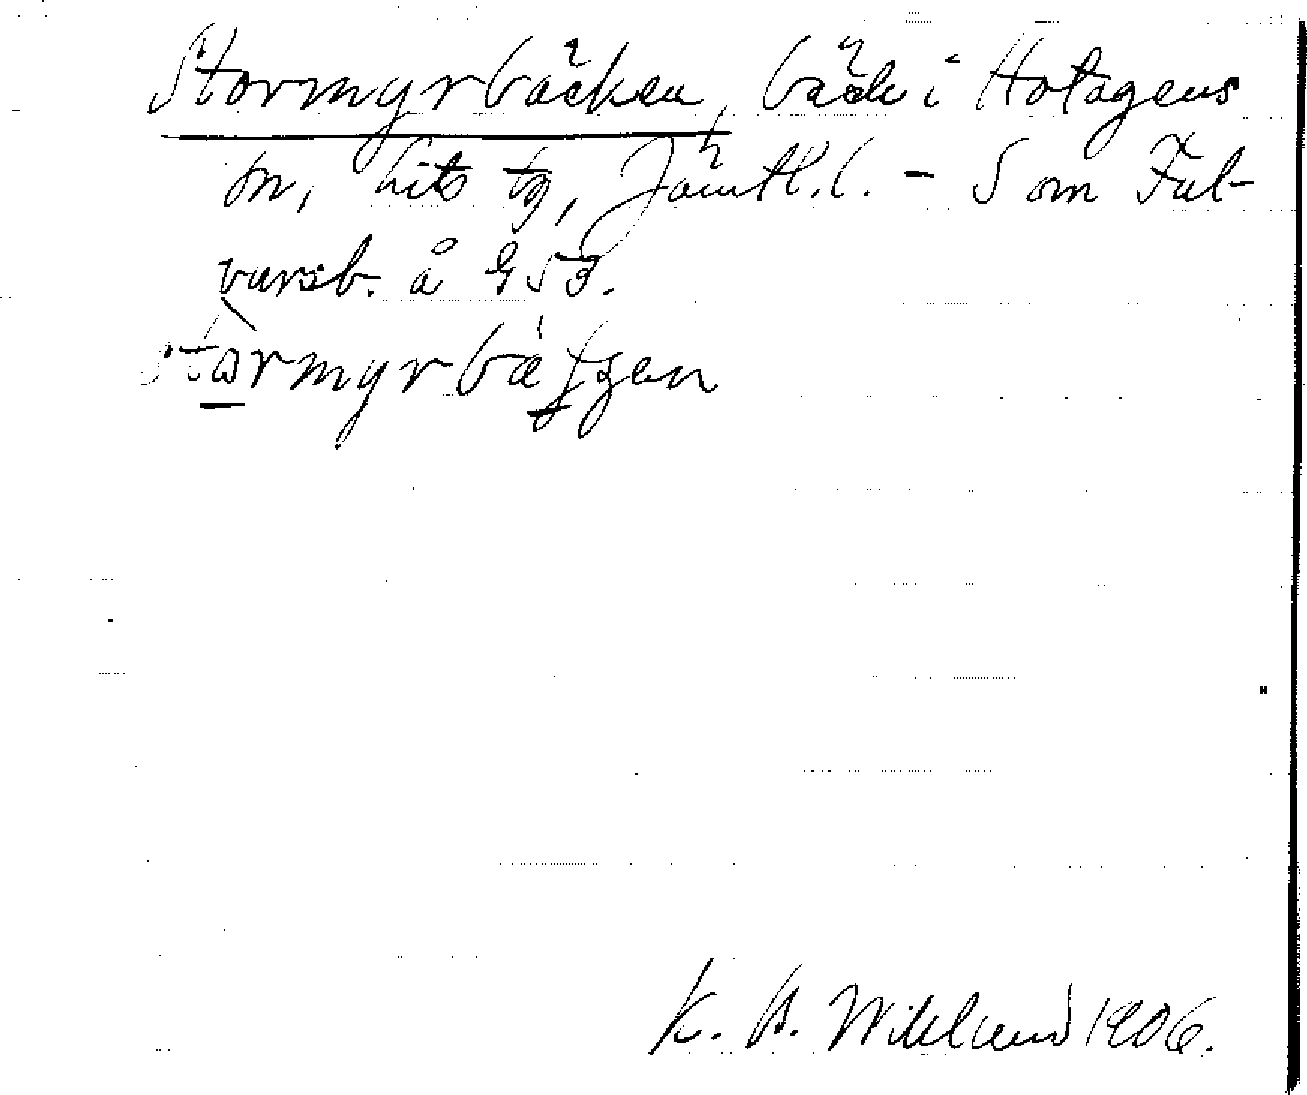 Stormyrbäcken, bäck i Hotagens
sn, Lits tg, Jämtl. l. - Som Ful-
vursb. å G53.
stormyrbätsen
K. B. Wiklund 1906.